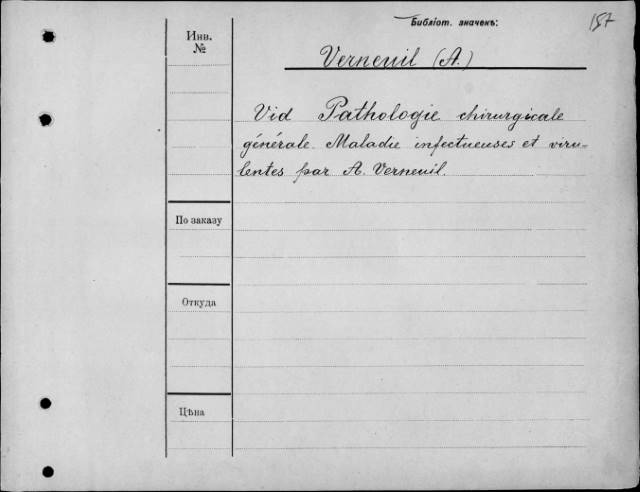 Библіот. значекъ:
157
Инв.
№
Verneuil (A.)
Vid Pathologie chirurgicale
générale. Maladie infectueuses et viru-
lentes par A. Verneuil.
По заказу
Откуда
Цѣна